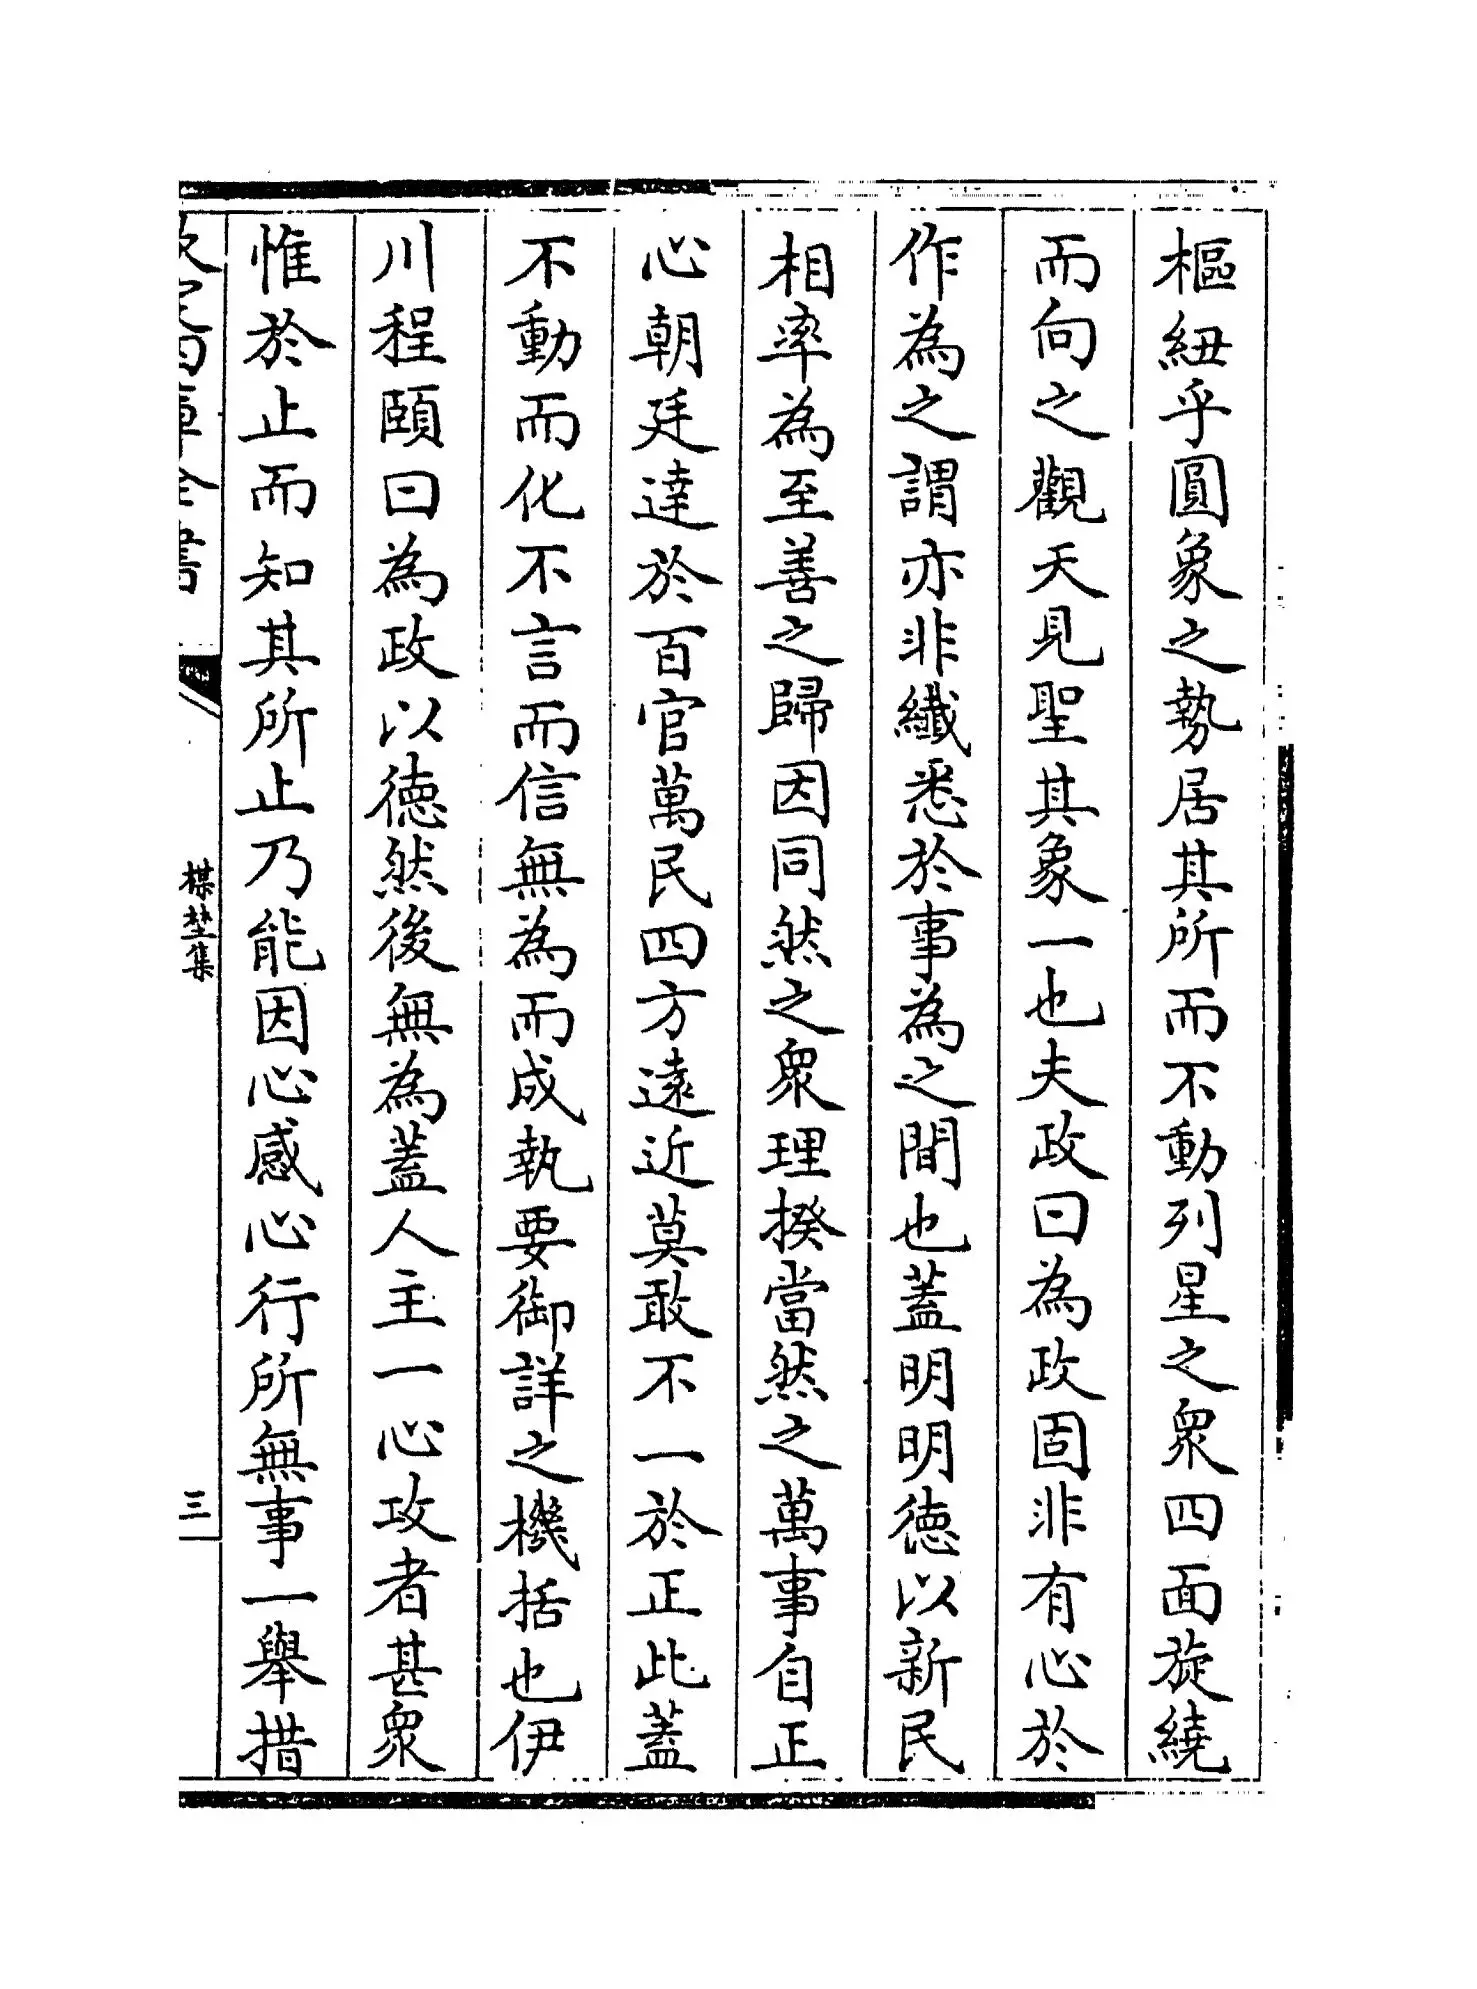 樞紐乎圓象之勢居其所而不動列星之衆四面旋繞
而向之觀天見聖其象一也夫政曰為政固非有心於
作為之謂亦非纖悉於事為之間也蓋明明德以新民
相率為至善之歸因同然之衆理揆當然之萬事自正
心朝廷達於百官萬民四方遠近莫敢不一於正此蓋
不動而化不言而信無為而成執要御詳之機括也伊
川程頤曰為政以德然後無為蓋人主一心攻者甚衆
惟於止而知其所止乃能因心感心行所無事一舉措
欽定四庫全書
楳埜集
三